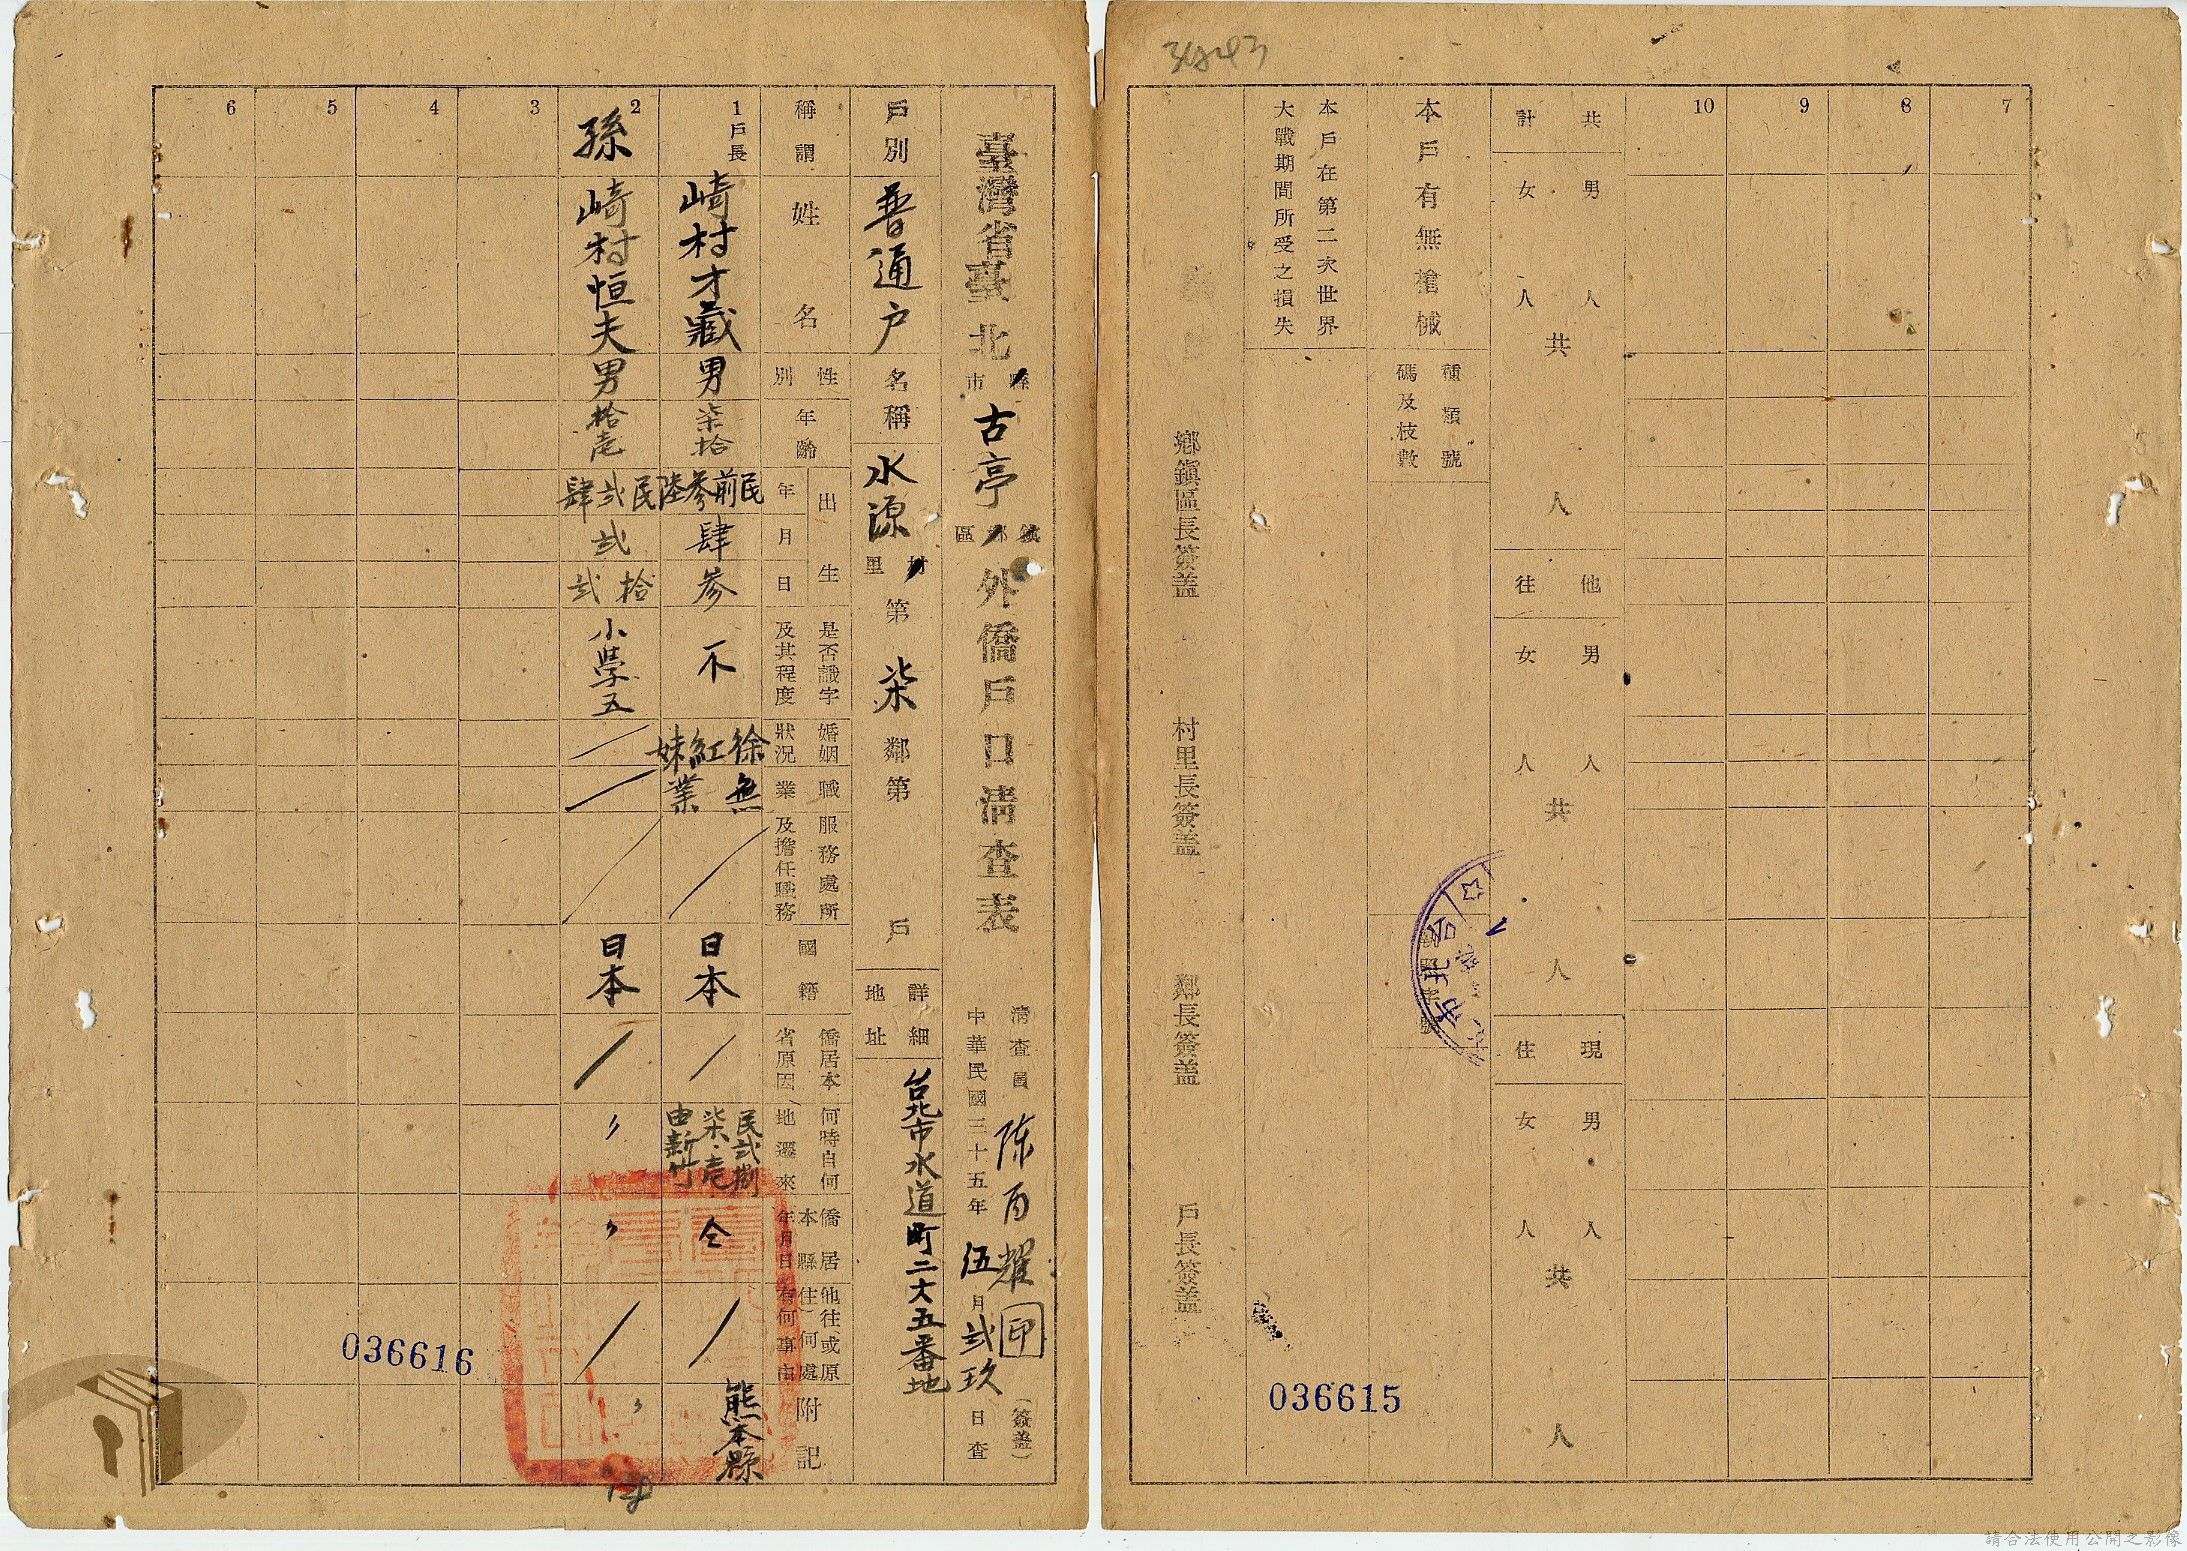 3643
7
8
9
10
共計
男 人
女 人
共 人
他往
男 人
女 人
共 人
現住
男 人
女 人
共 人
本戶有無槍械
種類號碼及枝數
本戶在第二次世界大戰期間所受之損失
鄉鎭區長簽盖
村里長簽盖
鄰長簽盖
戶長簽盖
036615
臺灣省臺北縣市古亭鎮鄉區外僑戶口清查表
清查員 陈百耀 印 (簽盖)
中華民國三十五年伍月貳玖日查
戶別
普通户
名稱
水源村里第柒鄰第 戶
詳細地址
台北市水道町二六五番地
稱謂
姓名
性別
年齡
出生
年
月
日
是否識字及其程度
婚姻狀況
職業
服務處所及擔任職務
國籍
僑居本省原因
何時自何地遷來
僑居本縣年月日
他往或原住何處有何事由
附記
1
戶長
崎村才藏
男
柒拾
民前參陸
肆
參
不
徐紅妹
無業
日本
民貳捌柒.壱由新竹
仝
熊本縣
2
孫
崎村恒夫
男
拾壱
民貳肆
貳
拾貳
小学五
日本
〃
〃
〃
3
4
5
6
036616
請合法使用公開之影像